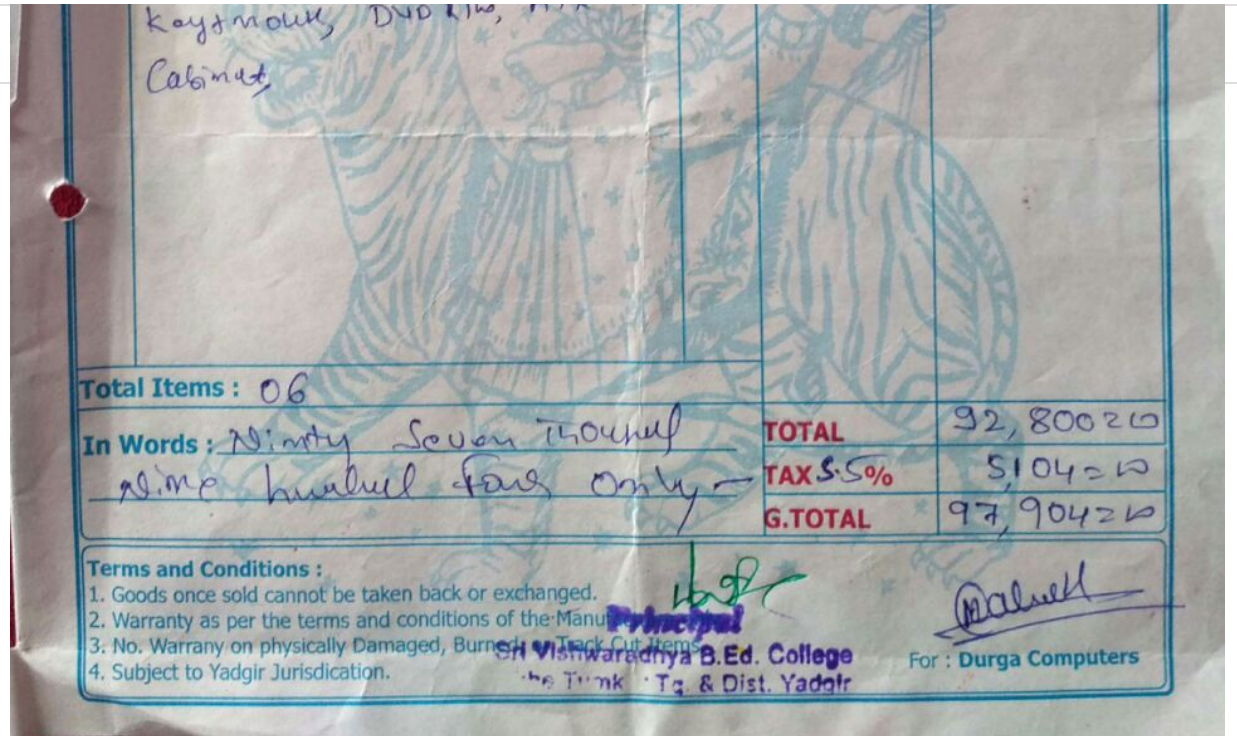 Key+mouse, DVD
Cabinet,
Total Items : 06
In Words : Ninty Seven Thousand
Nine hundred four Only
TOTAL 92,800=00
TAX 5.5% 5,104=00
G.TOTAL 97,904=00
Terms and Conditions :
1. Goods once sold cannot be taken back or exchanged.
2. Warranty as per the terms and conditions of the Manu
3. No. Warrany on physically Damaged, Burned, Track Cut Items
4. Subject to Yadgir Jurisdication.
Principal
Vishwaradhya B.Ed. College
Tq. & Dist. Yadgir
For : Durga Computers